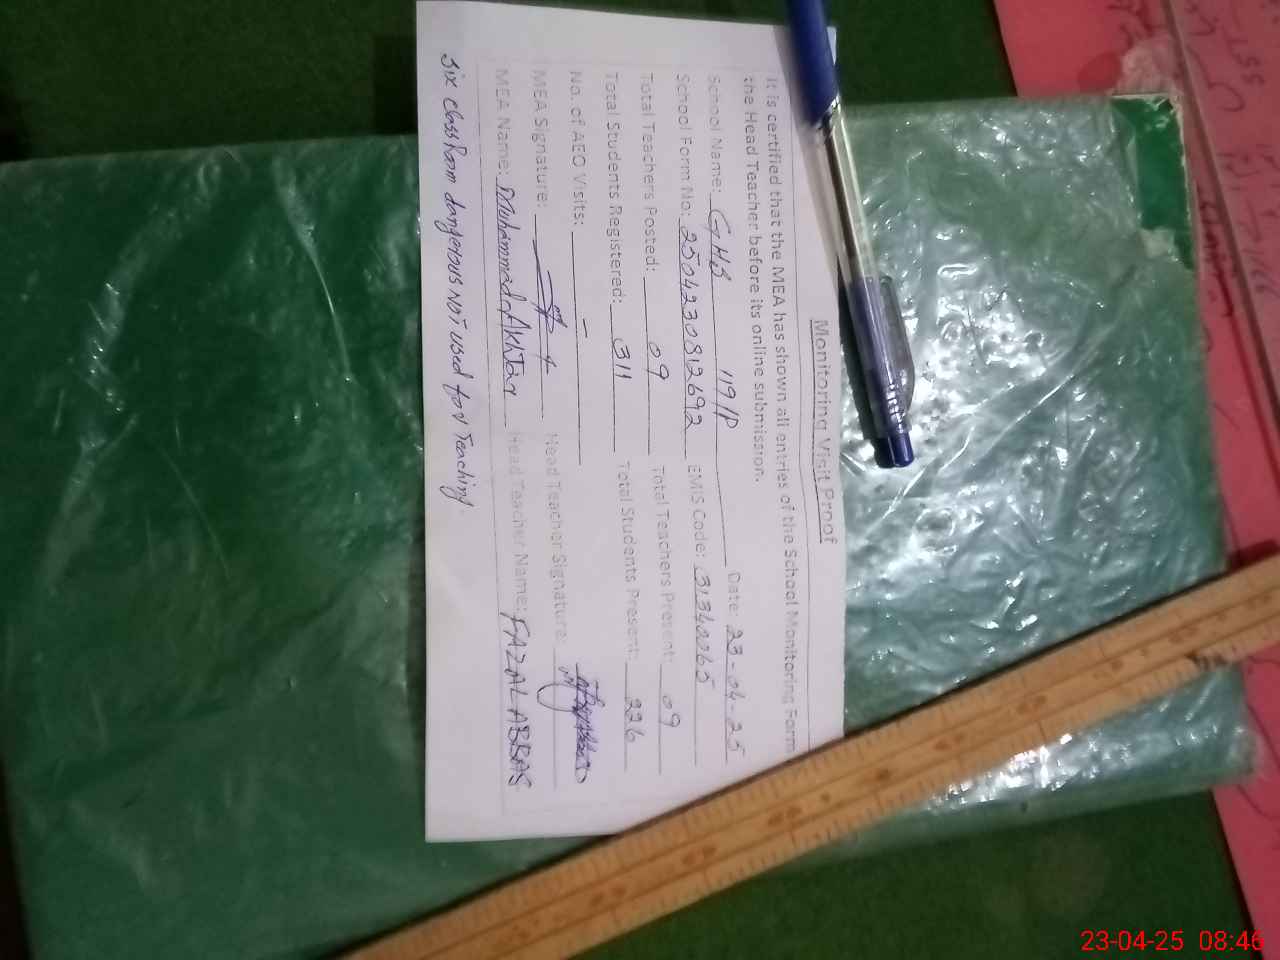 Monitoring Visit Proof
It is certified that the MEA has shown all entries of the School Monitoring Form
the Head Teacher before its online submission.
School Name: GHS 119/P Date: 23-04-25
School Form No: 2504230812692 EMIS Code: 31340065
Total Teachers Posted: 09 Total Teachers Present: 09
Total Students Registered: 311 Total Students Present: 226
No. of AEO Visits: -
MEA Signature: Head Teacher Signature:
MEA Name: Muhammad Akhtar Head Teacher Name: FAZAL ABBAS
Six Class Room dangerous Not used for Teaching
23-04-25 08:46